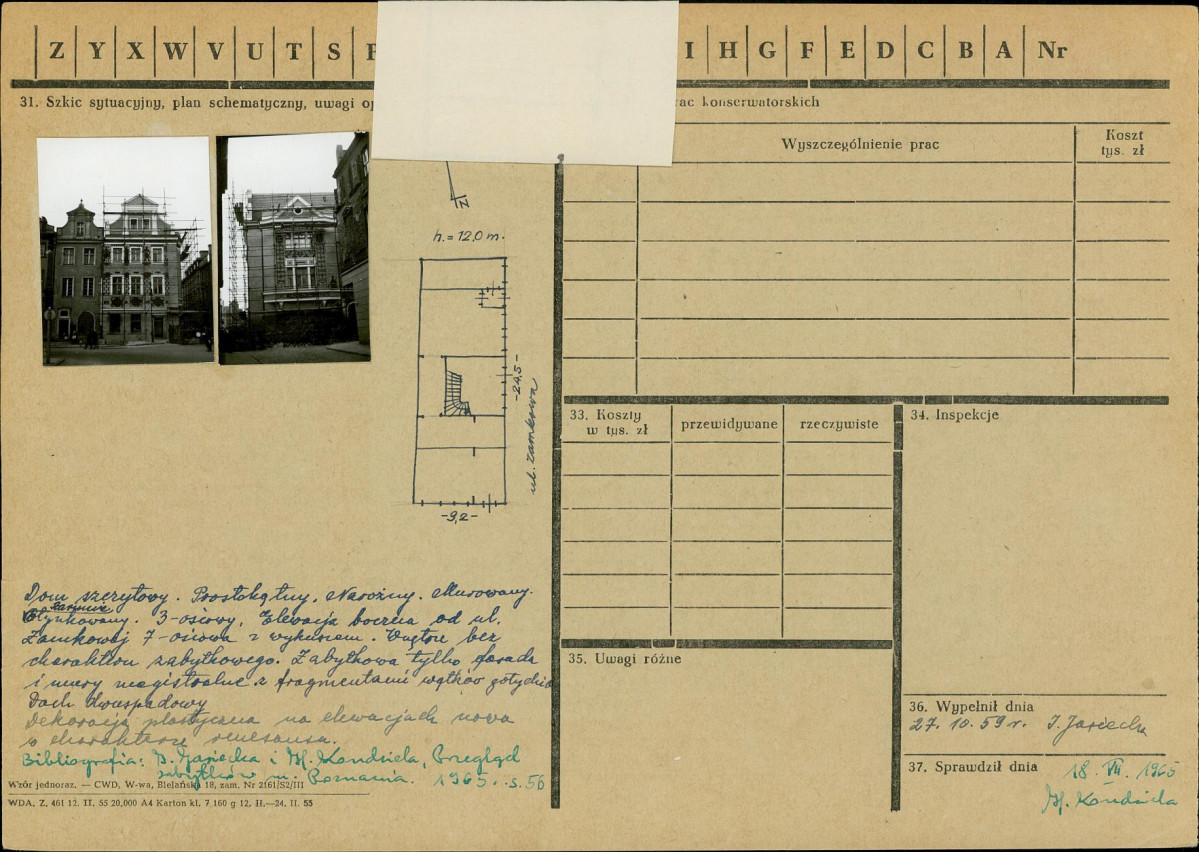 Z Y X W V U T S I H G F E D C B A Nr
31. Szkic sytuacyjny, plan schematyczny, uwagi
konserwatorskich
Wyszczególnienie prac
Koszt
tys. zł
N
h. = 12,0 m.
-24,5-
ul. Zamkowa
-9,2-
33. Koszty
w tys. zł
przewidywane
rzeczywiste
34. Inspekcje
Dom szczytowy. Prostokątny. Narożny. Murowany.
Otynkowany. 3-osiowy. Elewacja boczna od ul.
Zamkowej 7-osiowa z wykuszem. Wnętrze bez
charakteru zabytkowego. Zabytkowa tylko fasada
i mury magistralne z fragmentami wątków gotyckich
Dach dwuspadowy
Dekoracja plastyczna na elewacjach nowa
o charakterze renesansu.
Bibliografia: I. Jasiecka i H. Kondziela, Przegląd
zabytków m. Poznania. 1965. s. 56
35. Uwagi różne
36. Wypełnił dnia
27. 10. 59 r. I. Jasiecka
37. Sprawdził dnia
18. VII. 1965
H. Kondziela
Wzór jednoraz. — CWD, W-wa, Bielańska 18, zam. Nr 2161/S2/III
WDA, Z. 461 12. II. 55 20,000 A4 Karton kl. 7 160 g 12. II.—24. II. 55